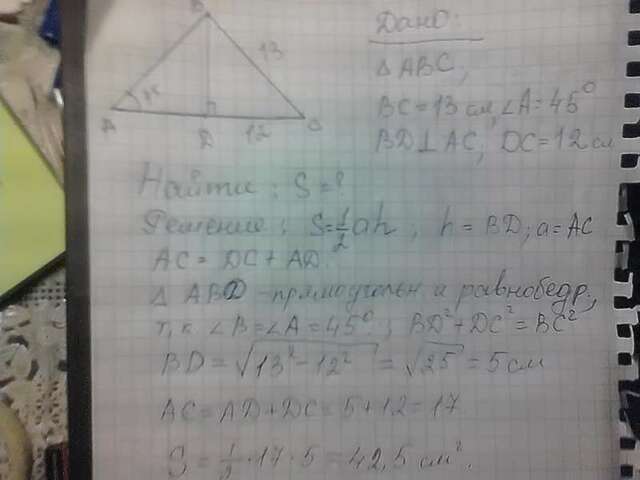 B
Дано:
13
△ABC,
45
BC=13 см, ∠A=45°
A
D
12
C
BD⊥AC, DC=12 см
Найти: S=?
Решение: S=½ah; h=BD; a=AC
AC=DC+AD.
△ABD-прямоугольн. и равнобедр.,
т.к ∠B=∠A=45°; BD²+DC²=BC²
BD=√13²-12²=√25=5 см
AC=AD+DC=5+12=17
S=½·17·5=42,5 см².